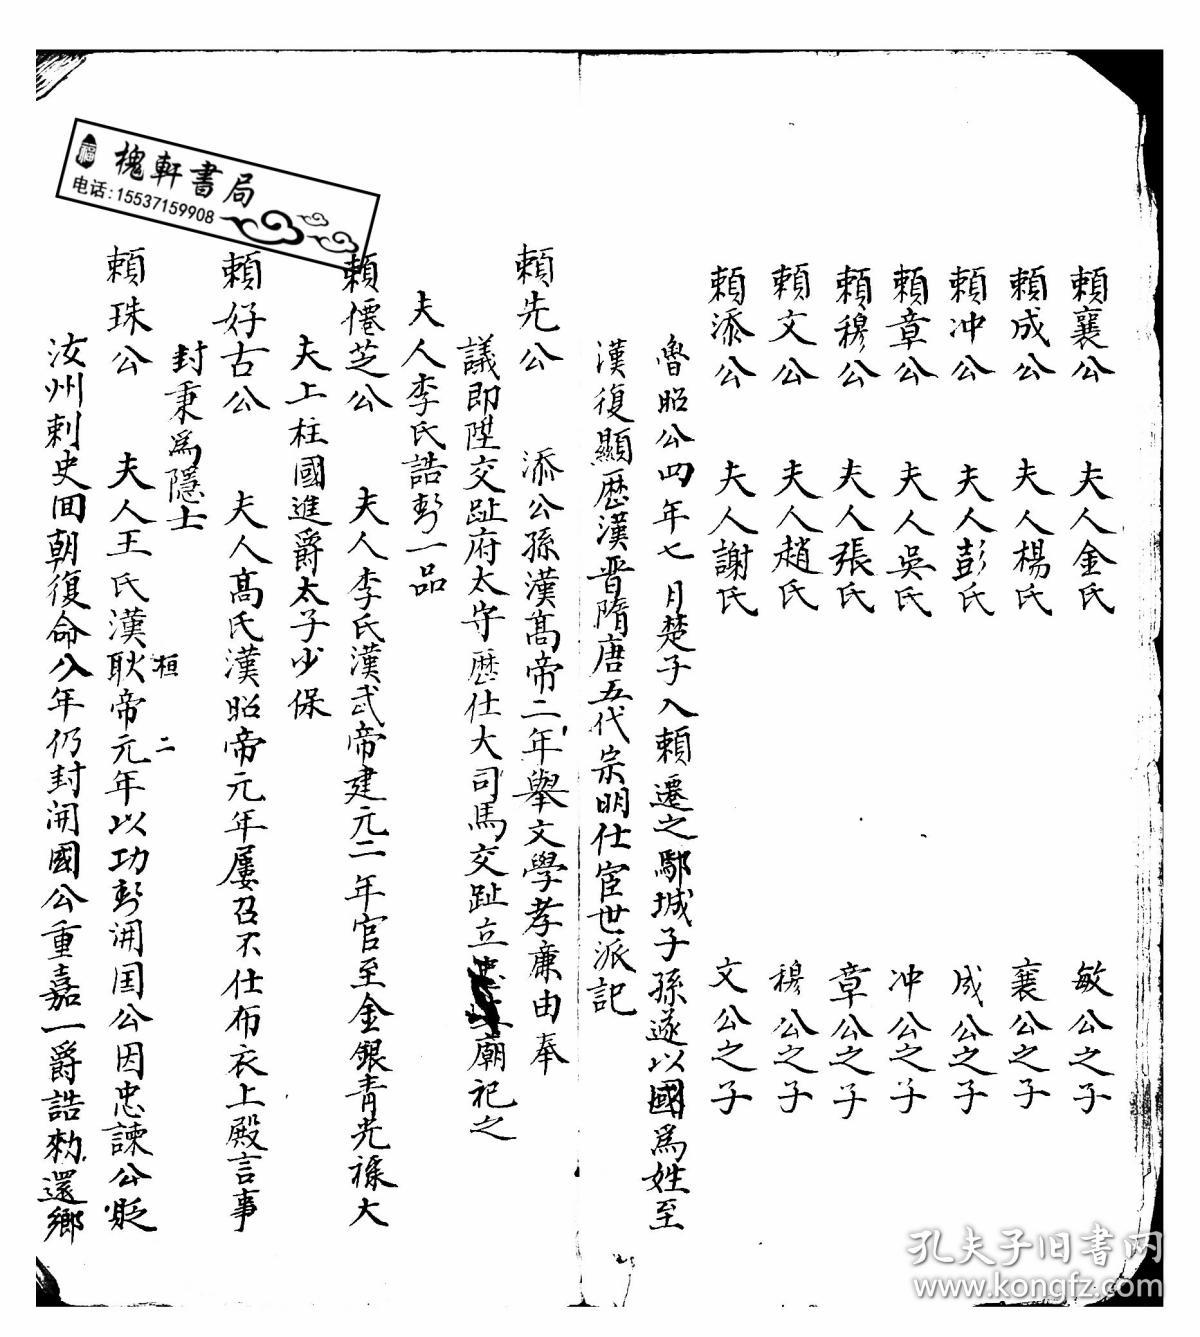 賴襄公 夫人金氏 敏公之子
賴成公 夫人楊氏 襄公之子
賴冲公 夫人彭氏 成公之子
賴章公 夫人吳氏 冲公之子
賴穆公 夫人張氏 章公之子
賴文公 夫人趙氏 穆公之子
賴添公 夫人謝氏 文公之子
魯昭公四年七月楚子入賴遷之鄢城子孫遂以國為姓至
漢復顯歷漢晋隋唐五代宗明仕宦世派記
賴先公 添公孫漢高帝二年舉文學孝廉由奉
議即陞交趾府太守歷仕大司馬交趾立廟祀之
夫人李氏誥封一品
賴僊芝公 夫人李氏漢武帝建元二年官至金銀青光祿大
夫上柱國進爵太子少保
賴好古公 夫人高氏漢昭帝元年屢召不仕布衣上殿言事
封秉為隱士
桓 二
賴珠公 夫人王氏漢耿帝元年以功封開国公因忠諫公貶
汝州刺史囬朝復命八年仍封開國公重嘉一爵誥勑還鄉
福
槐軒書局
电话:15537159908
孔夫子旧书网
www.kongfz.com